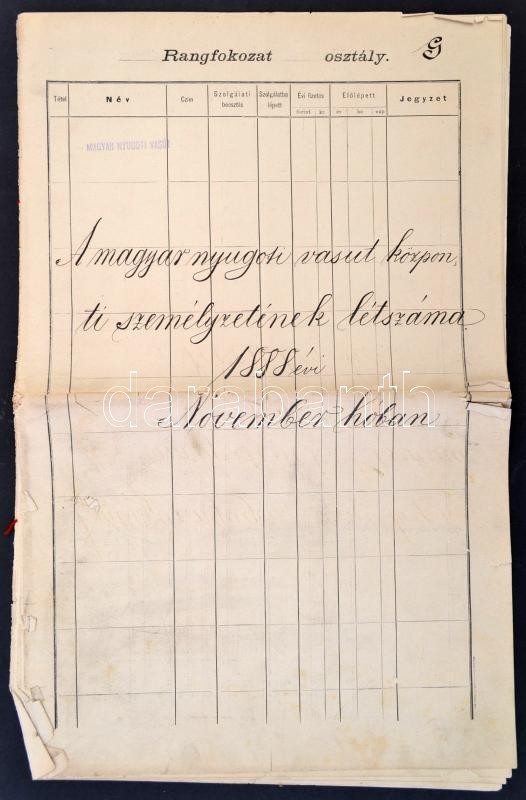 Rangfokozat osztály. G
Tétel Név Czím Szolgálati beosztás Szolgálatba lépett Évi fizetés Előlépett Jegyzet
forint kr. év hó nap
MAGYAR NYUGOTI VASÚT
A magyar nyugoti vasut közpon„
ti személyzetének létszáma
1888 évi
November hoban
darabanth